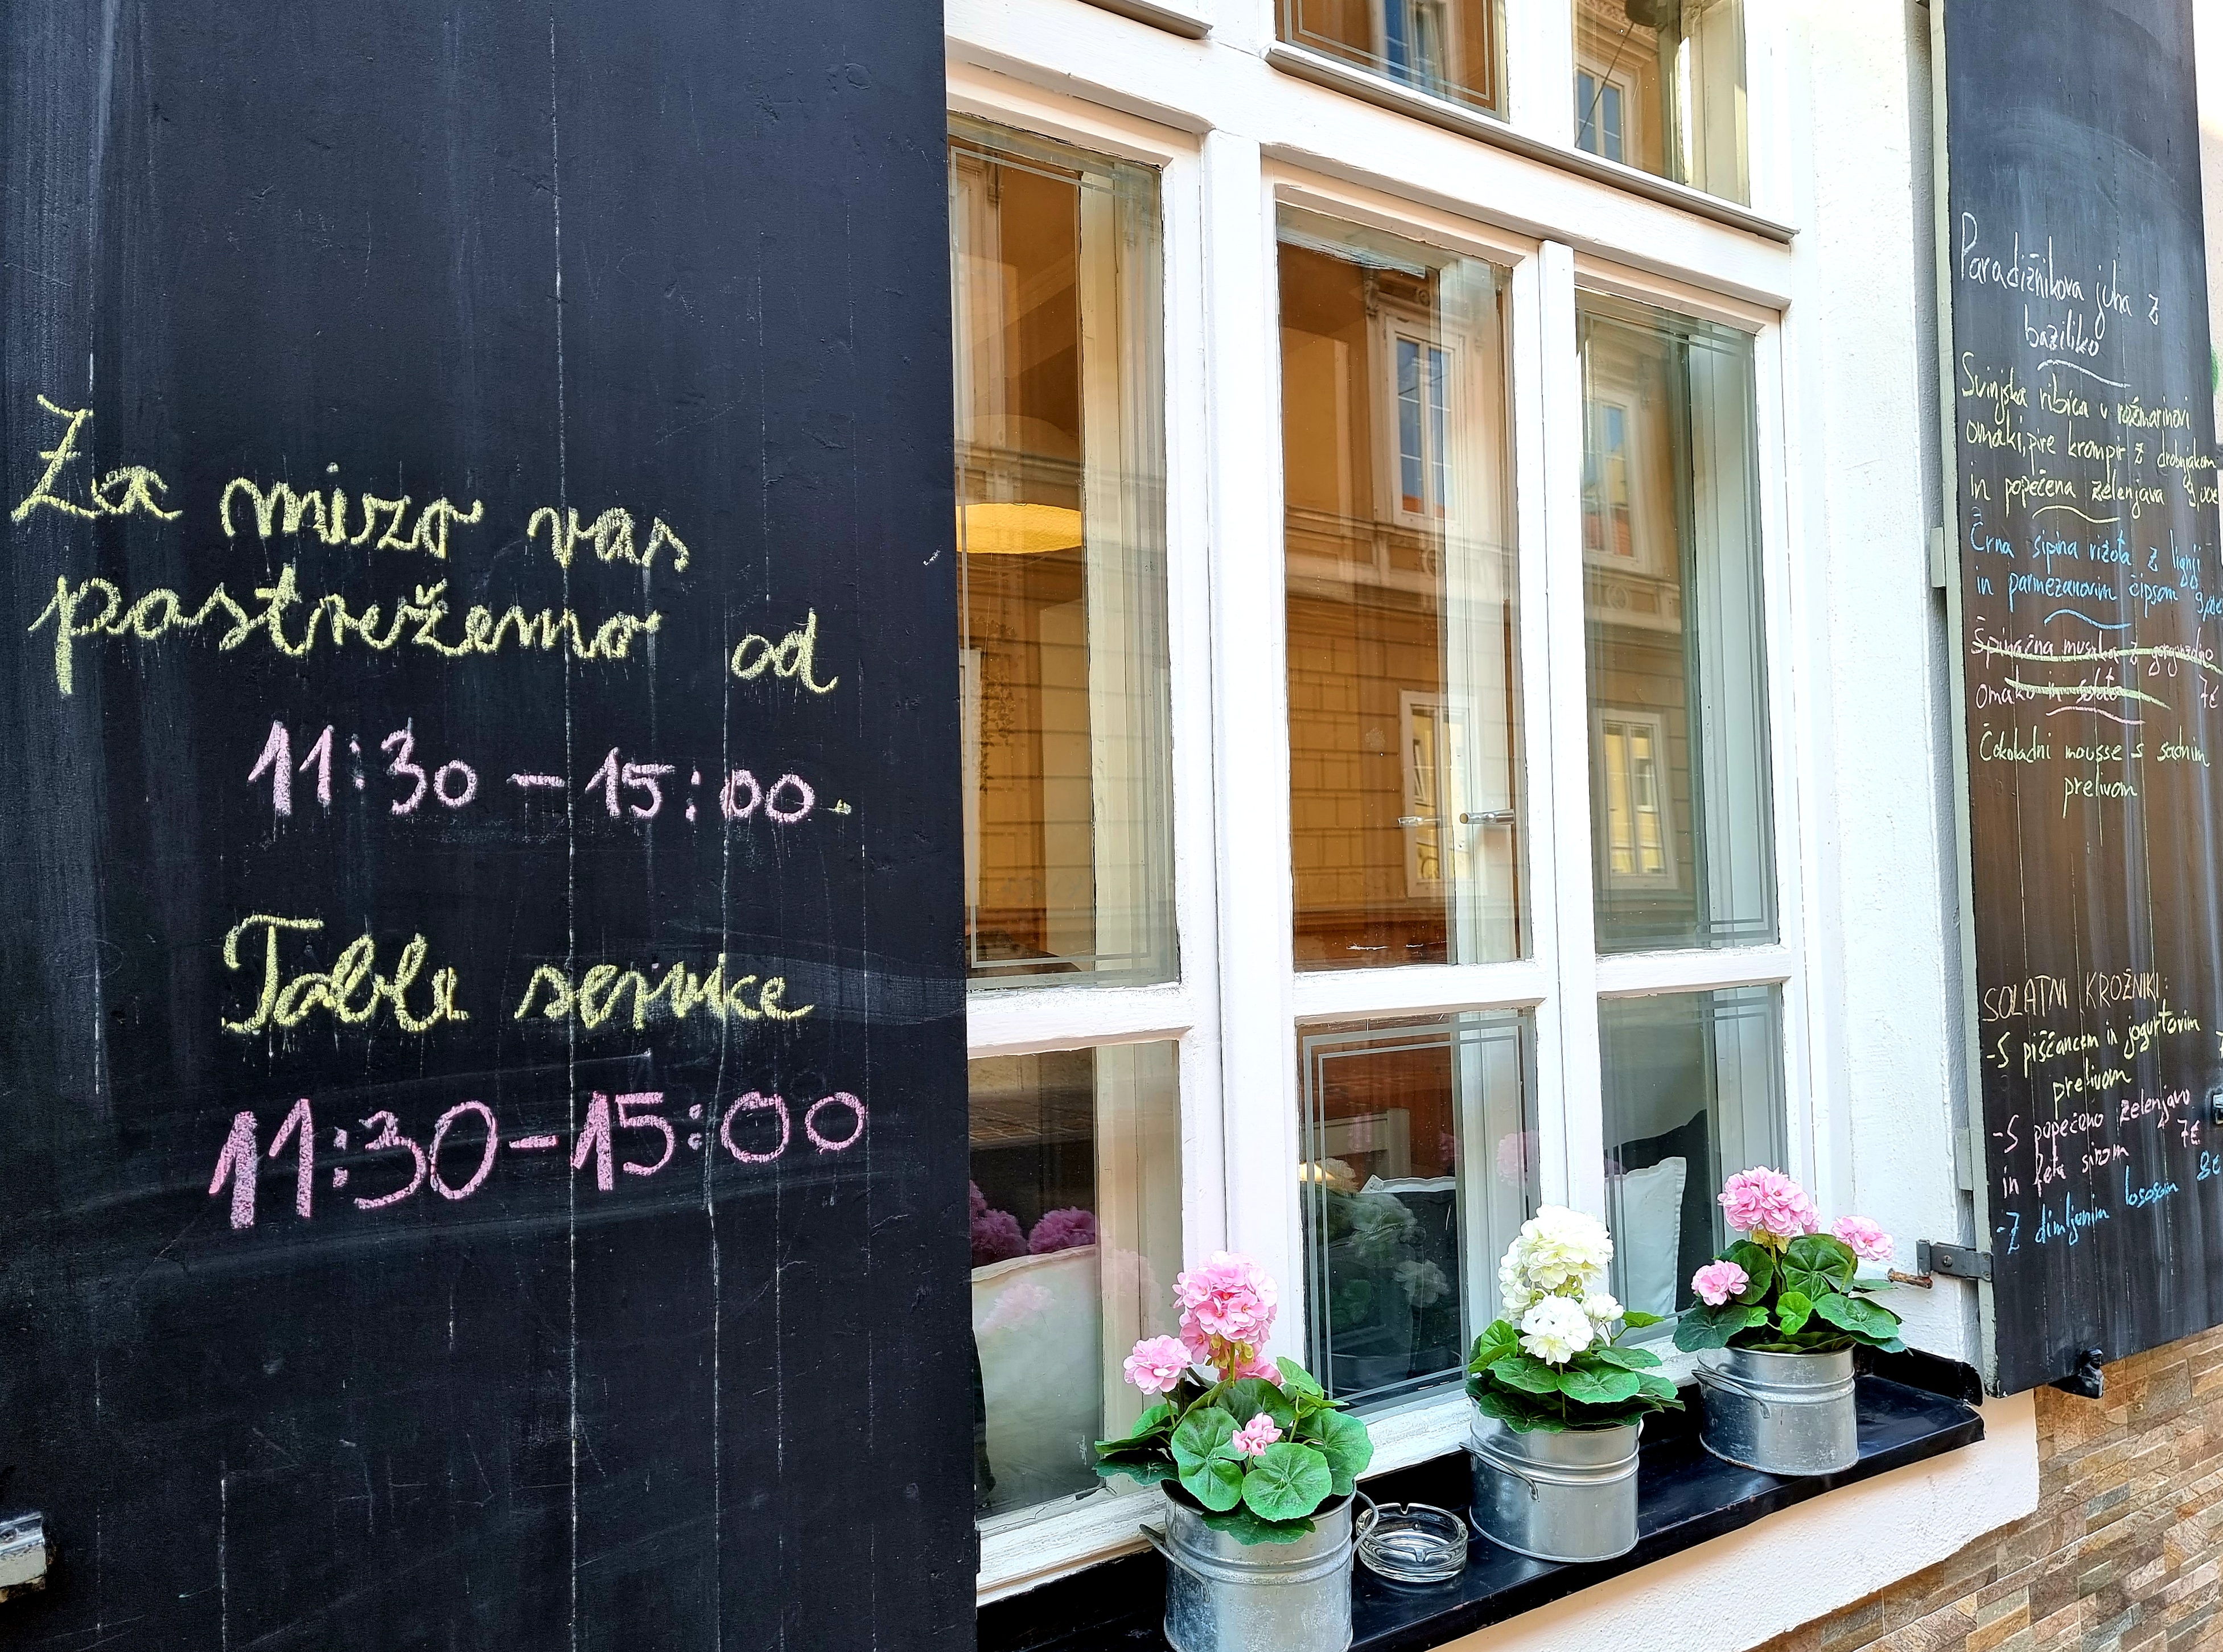 Za mizo vas
postrežemo od
11:30 - 15:00.
Table service
11:30 - 15:00
Paradižnikova juha z
baziliko
Svinjska ribica v rožmarinovi
omaki, pire krompir z drobnjakom
in popečena zelenjava
Črna sipina rižota z lignji
in parmezanovim čipsom
Špinačna musaka z gorgonzolo
omako in solata 7€
Čokoladni mousse s sadnim
prelivom
SOLATNI KROŽNIKI:
-S piščancem in jogurtovim
prelivom
-S popečeno zelenjavo
in feta sirom 7€
-Z dimljenim lososom 8€